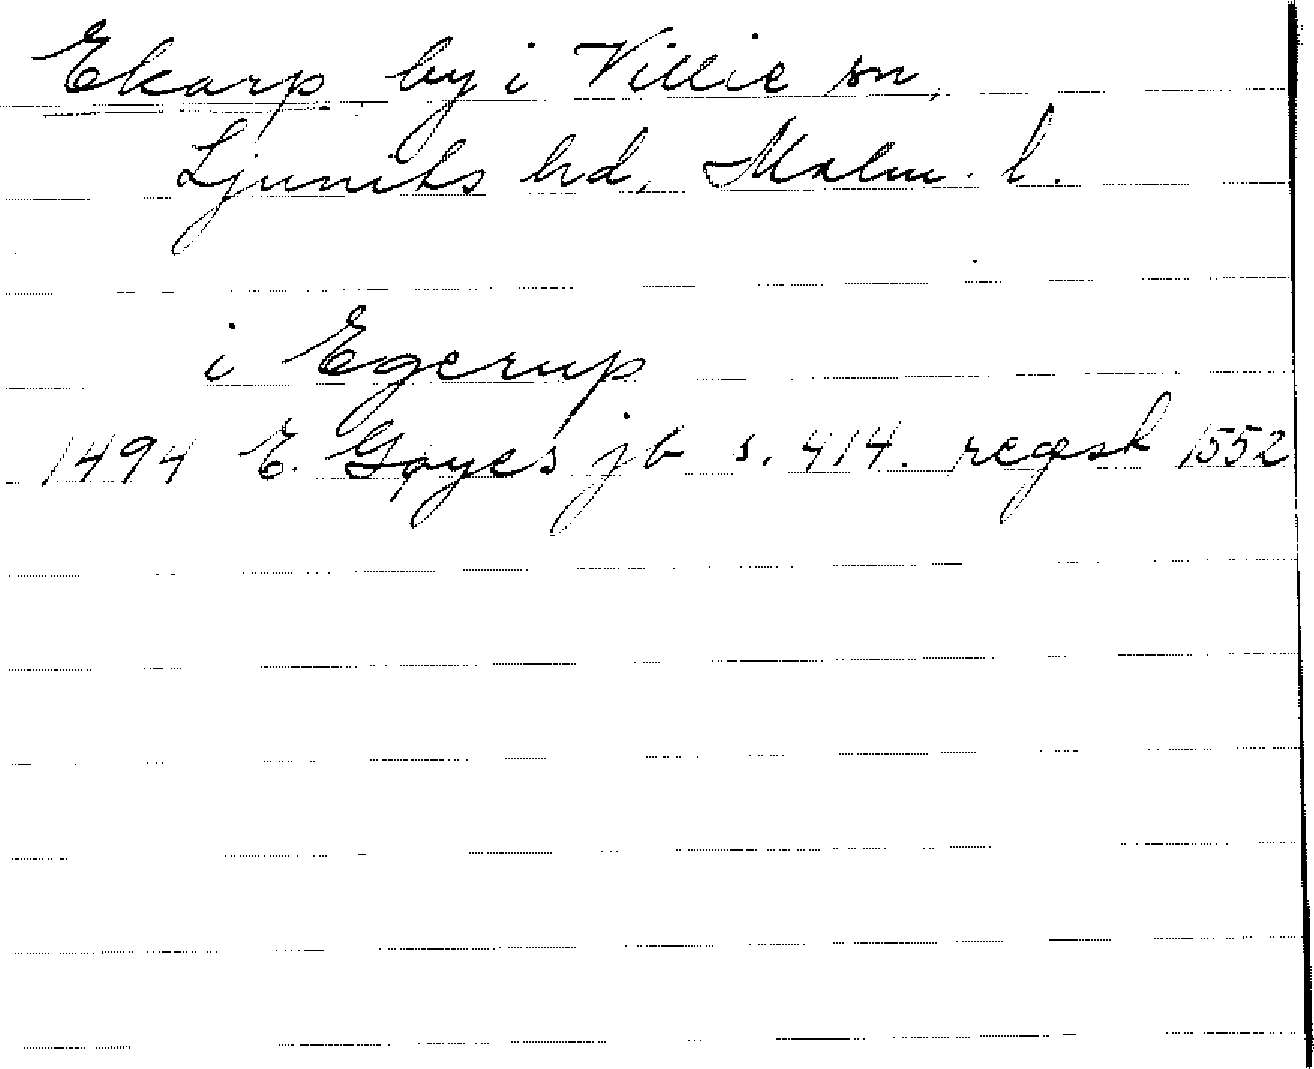 Ekarp by i Villie sn,
Ljunits hd, Malm. l.
i Egerup
1494 E. Gøyes jb s. 414. regsk 1552